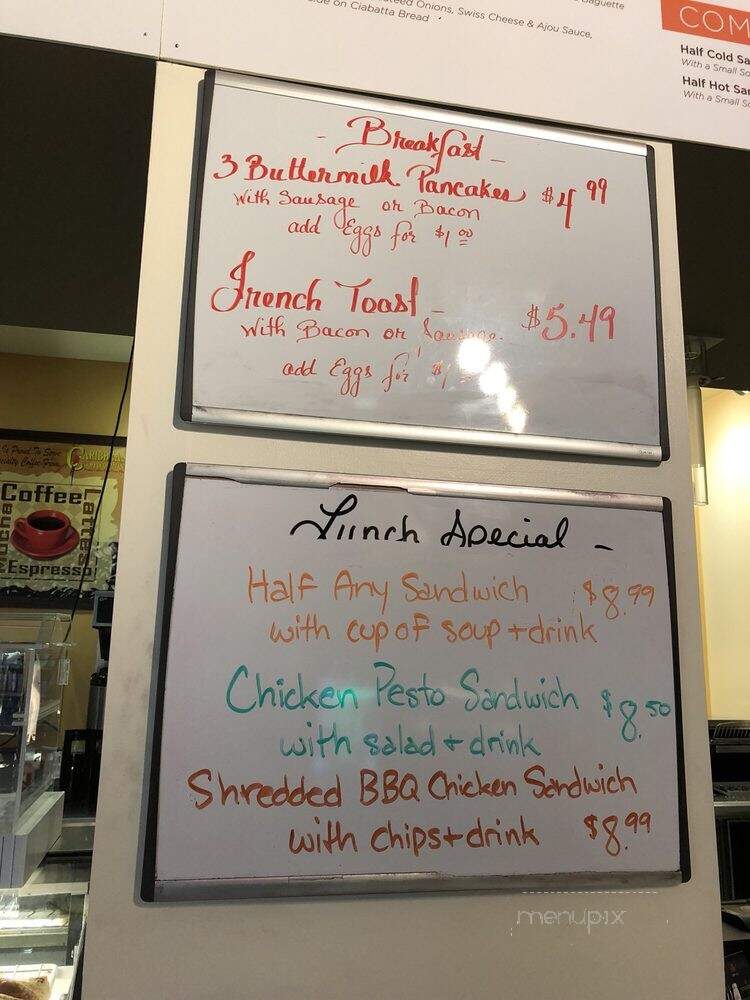 Baguette
Onions, Swiss Cheese & Ajou Sauce,
on Ciabatta Bread
COM
Half Cold Sa
With a Small So
Half Hot San
With a Small S
- Breakfast -
3 Buttermilk Pancakes $4.99
with Sausage or Bacon
add Eggs for $1.00
French Toast - $5.49
with Bacon or Sausage.
add Eggs for $1
Lunch Special -
Half Any Sandwich $8.99
with cup of soup + drink
Chicken Pesto Sandwich $8.50
with salad + drink
Shredded BBQ Chicken Sandwich
with chips + drink $8.99
Coffee
Lattes
Espresso
menupix